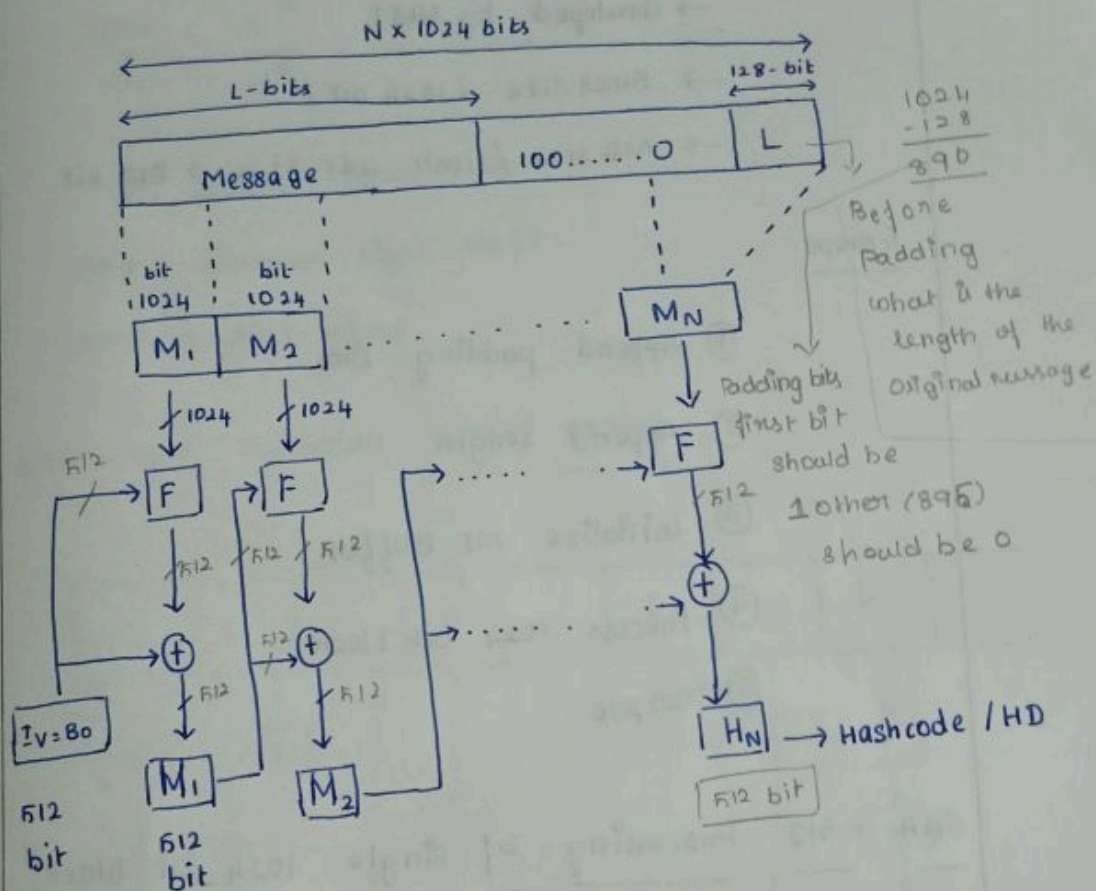 N x 1024 bits
L-bits
128-bit
Message
100......0
L
1024
-128
890
Before
padding
what is the
length of the
original message
bit
1024
bit
1024
M1
M2
MN
1024
1024
Padding bits
first bit
should be
1 other (895)
should be 0
512
F
F
F
512
512
512
512
+
+
+
512
512
512
IV = B0
512
bit
M1
512
bit
M2
HN → Hashcode / HD
512 bit